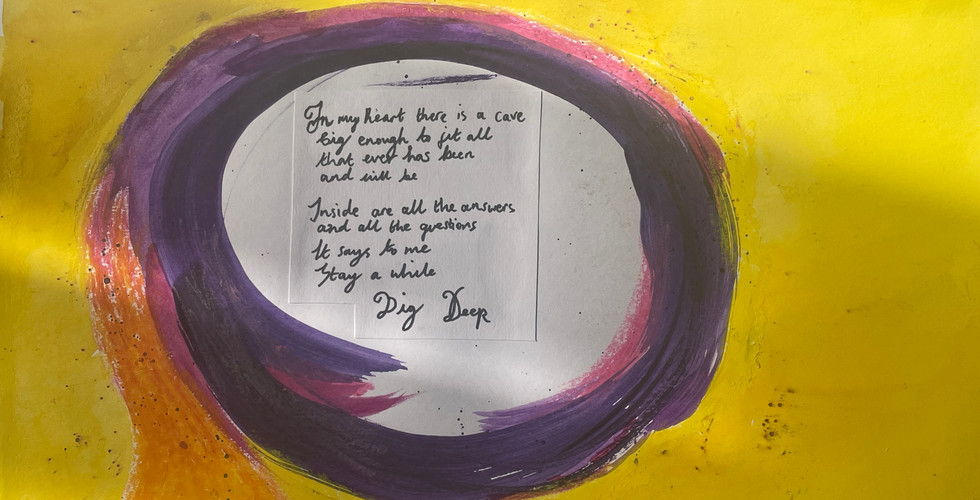 In my heart there is a cave
big enough to fit all
that ever has been
and will be
Inside are all the answers
and all the questions
It says to me
Stay a while
Dig Deep